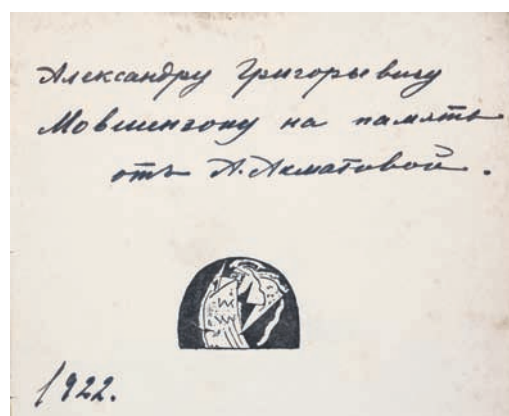 Александру Григорьевичу
Мовшензону на память
отъ А. Ахматовой.
1922.